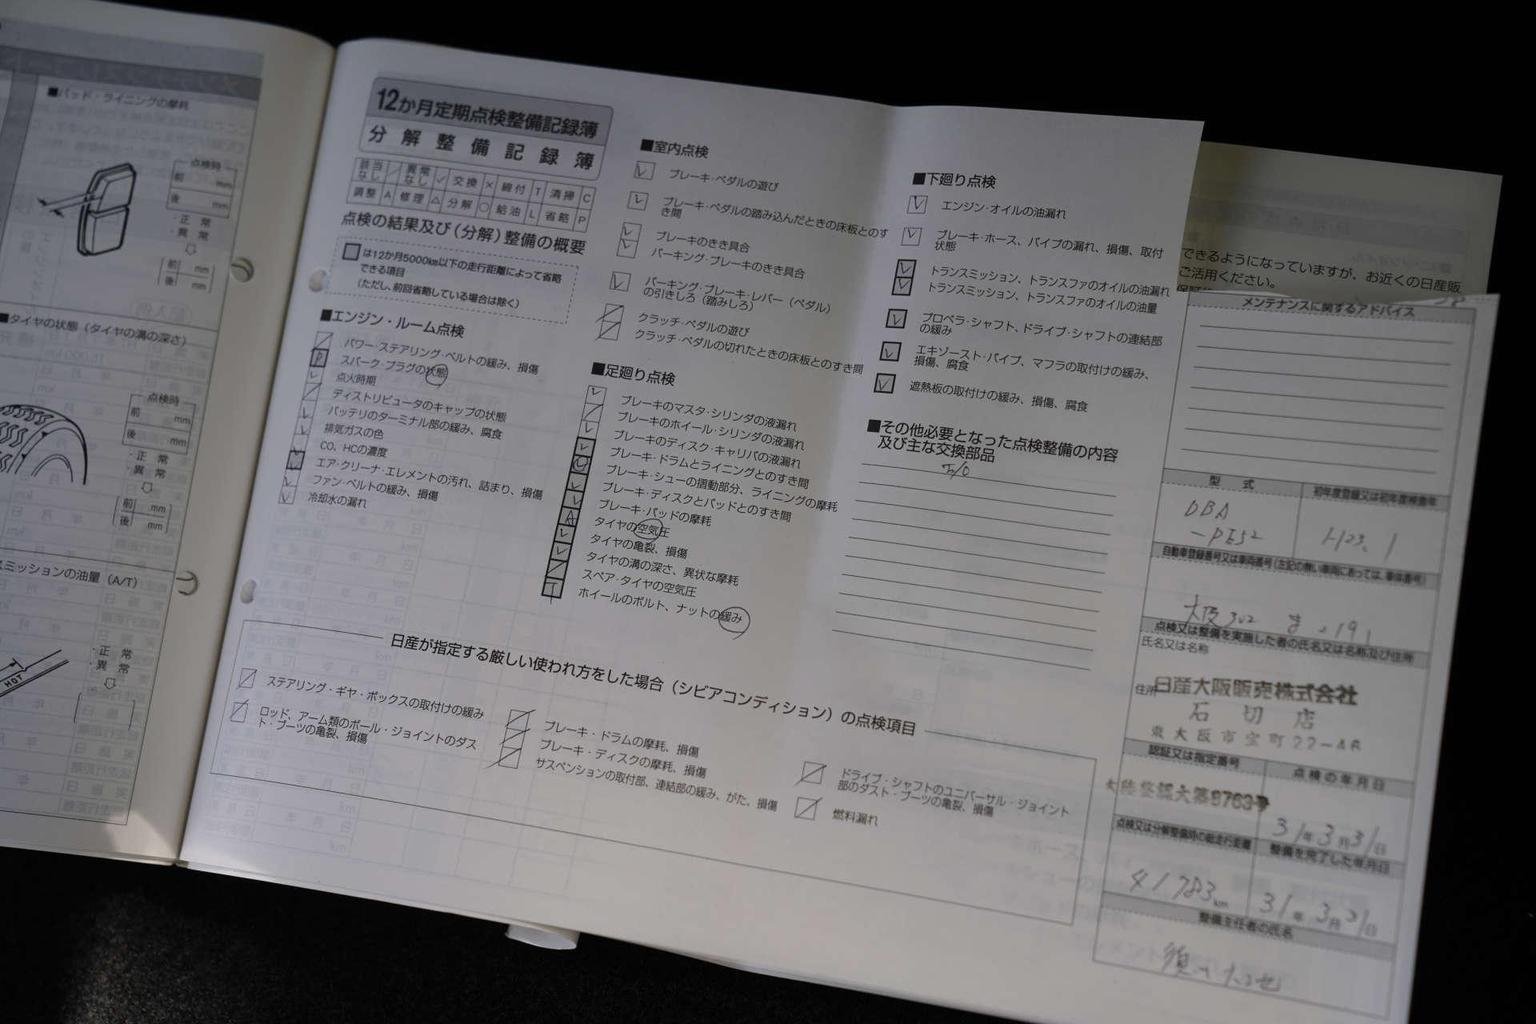 ■パッド・ライニングの摩耗
点検時
前 mm
後 mm
・正 常
・異 常
前 mm
後 mm
■タイヤの状態（タイヤの溝の深さ）
点検時
前 mm
後 mm
・正 常
・異 常
前 mm
後 mm
ミッションの油量（A/T）
・正 常
・異 常
HOT
12か月定期点検整備記録簿
分解整備記録簿
該当なし ／ 異常なし ✓ 交換 × 締付 T 清掃 C
調整 A 修理 △ 分解 ○ 給油 L 省略 P
点検の結果及び（分解）整備の概要
は12か月5000km以下の走行距離によって省略
できる項目
（ただし、前回省略している場合は除く）
■エンジン・ルーム点検
パワー・ステアリング・ベルトの緩み、損傷
P スパーク・プラグの状態
点火時期
ディストリビュータのキャップの状態
バッテリのターミナル部の緩み、腐食
排気ガスの色
CO、HCの濃度
エア・クリーナ・エレメントの汚れ、詰まり、損傷
ファン・ベルトの緩み、損傷
冷却水の漏れ
■室内点検
ブレーキ・ペダルの遊び
ブレーキ・ペダルの踏み込んだときの床板とのす
き間
ブレーキのきき具合
パーキング・ブレーキのきき具合
パーキング・ブレーキ・レバー（ペダル）
の引きしろ（踏みしろ）
クラッチ・ペダルの遊び
クラッチ・ペダルの切れたときの床板とのすき間
■足廻り点検
ブレーキのマスタ・シリンダの液漏れ
ブレーキのホイール・シリンダの液漏れ
ブレーキのディスク・キャリパの液漏れ
ブレーキ・ドラムとライニングとのすき間
ブレーキ・シューの摺動部分、ライニングの摩耗
ブレーキ・ディスクとパッドとのすき間
ブレーキ・パッドの摩耗
A タイヤの空気圧
タイヤの亀裂、損傷
タイヤの溝の深さ、異状な摩耗
スペア・タイヤの空気圧
T ホイールのボルト、ナットの緩み
■下廻り点検
エンジン・オイルの油漏れ
ブレーキ・ホース、パイプの漏れ、損傷、取付
状態
トランスミッション、トランスファのオイルの油漏れ
トランスミッション、トランスファのオイルの油量
プロペラ・シャフト、ドライブ・シャフトの連結部
の緩み
エキゾースト・パイプ、マフラの取付けの緩み、
損傷、腐食
遮熱板の取付けの緩み、損傷、腐食
■その他必要となった点検整備の内容
及び主な交換部品
日産が指定する厳しい使われ方をした場合（シビアコンディション）の点検項目
ステアリング・ギヤ・ボックスの取付けの緩み
ロッド、アーム類のボール・ジョイントのダス
ト・ブーツの亀裂、損傷
ブレーキ・ドラムの摩耗、損傷
ブレーキ・ディスクの摩耗、損傷
サスペンションの取付部、連結部の緩み、がた、損傷
ドライブ・シャフトのユニバーサル・ジョイント
部のダスト・ブーツの亀裂、損傷
燃料漏れ
できるようになっていますが、お近くの日産販
ご活用ください。
メンテナンスに関するアドバイス
型 式
初年度登録又は初年度検査年
DBA
-PE52
H23. 1
自動車登録番号又は車両番号（左記の無い車両にあっては、車体番号）
大阪302
点検又は整備を実施した者の氏名又は名称及び住所
氏名又は名称
住所
日産大阪販売株式会社
石切店
東大阪市宝町22-48
認証又は指定番号
点検の年月日
31年3月31日
点検又は分解整備時の総走行距離
整備を完了した年月日
41783km
31年3月31日
整備主任者の氏名